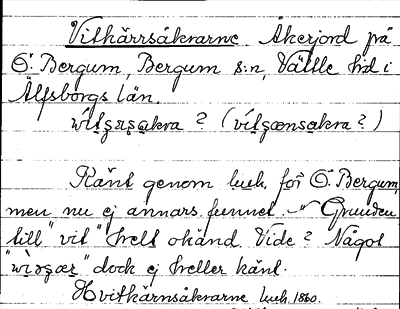 Vitkärrsåkrarne Åkerjord på
Ö. Bergum, Bergum s:n, Vättle hd i
Älfsborgs län.
? ( ? )
Känt genom luh, för Ö. Bergum,
men nu ej annars funnet. Grunden
till "vit" helt okänd. Vide? Något
dock ej heller känt.
Hvitkärnsåkrarne luh 1860.